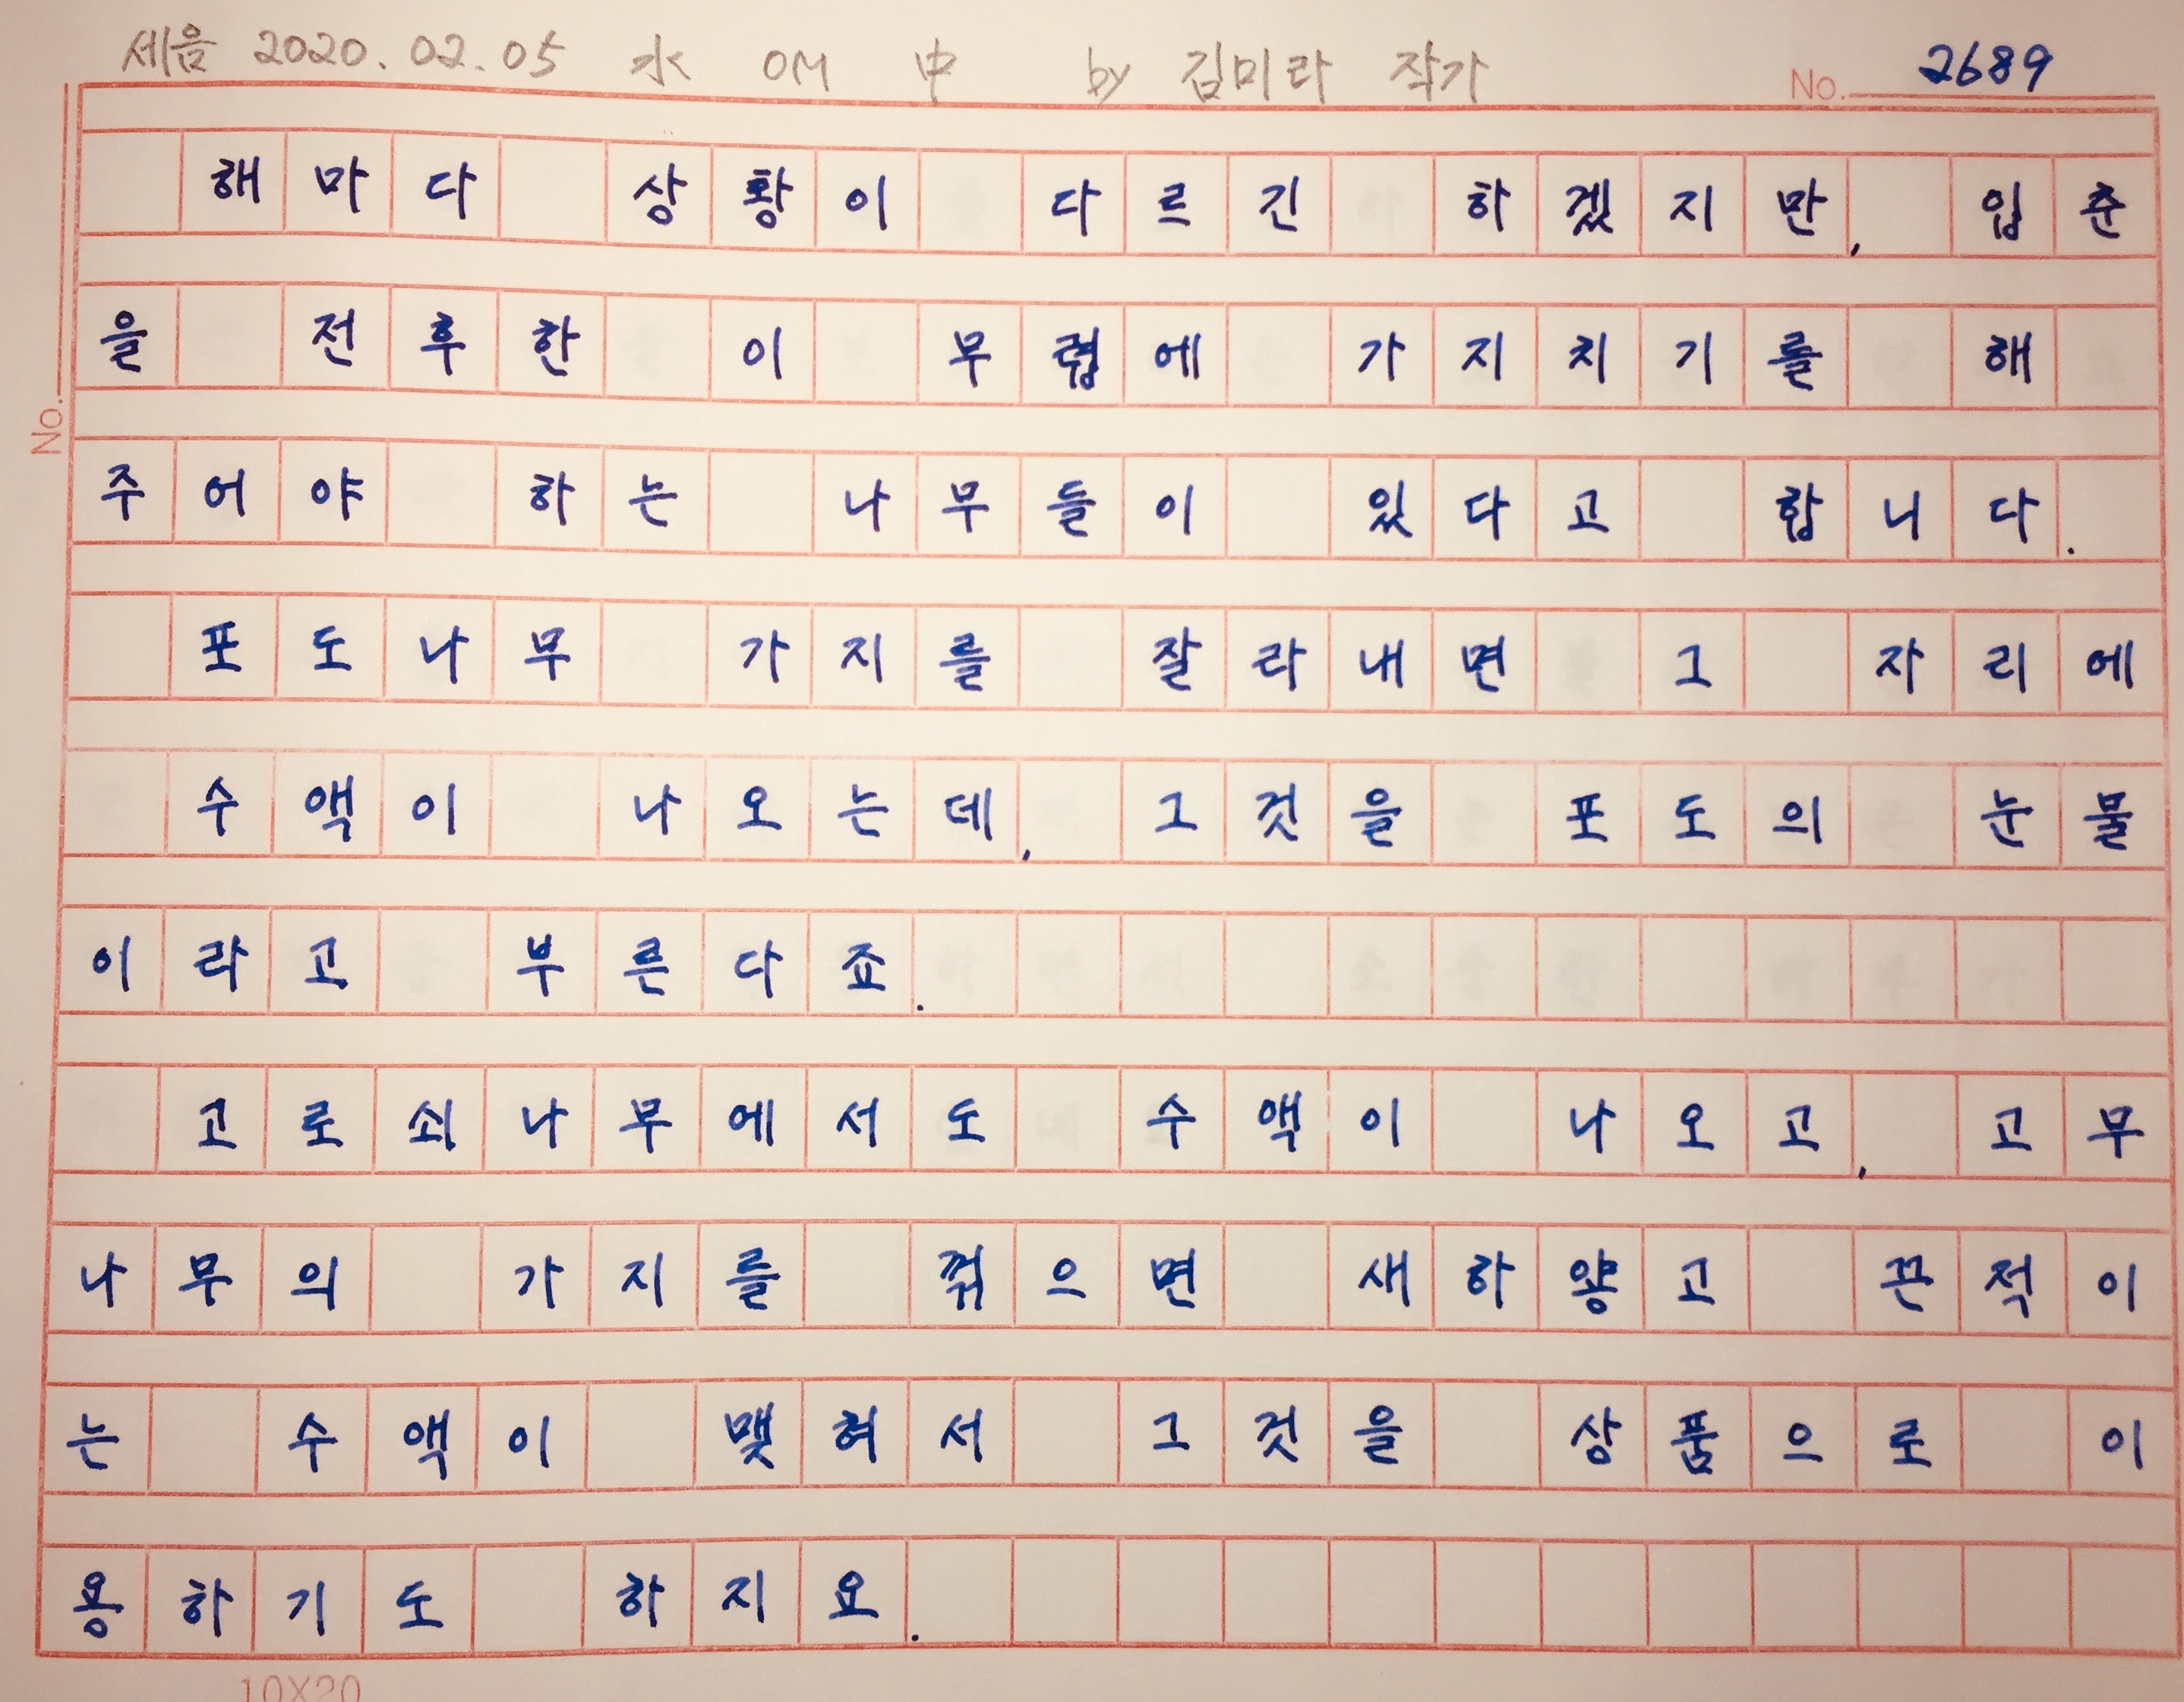 세음 2020. 02. 05 水 OM 中 by 김미라 작가
No. 2689
No.
해마다 상황이 다르긴 하겠지만, 입춘
을 전후한 이 무렵에 가지치기를 해
주어야 하는 나무들이 있다고 합니다.
포도나무 가지를 잘라내면 그 자리에
수액이 나오는데, 그것을 포도의 눈물
이라고 부른다죠.
고로쇠나무에서도 수액이 나오고, 고무
나무의 가지를 꺾으면 새하얗고 끈적이
는 수액이 맺혀서 그것을 상품으로 이
용하기도 하지요.
10X20